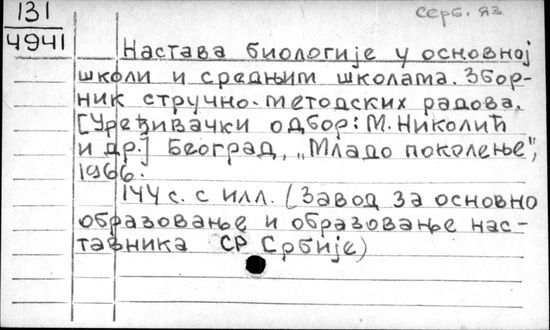 131
4941
серб. яз.
Настава биологије у основној
школи и средњим школама. Збор-
ник стручно-методских радова.
[Уређивачки одбор: М. Николић
и др.] Београд, „Младо поколење",
1966.
144 с. с илл. (Завод за основно
образовање и образовање нас-
тавника СР Србије)